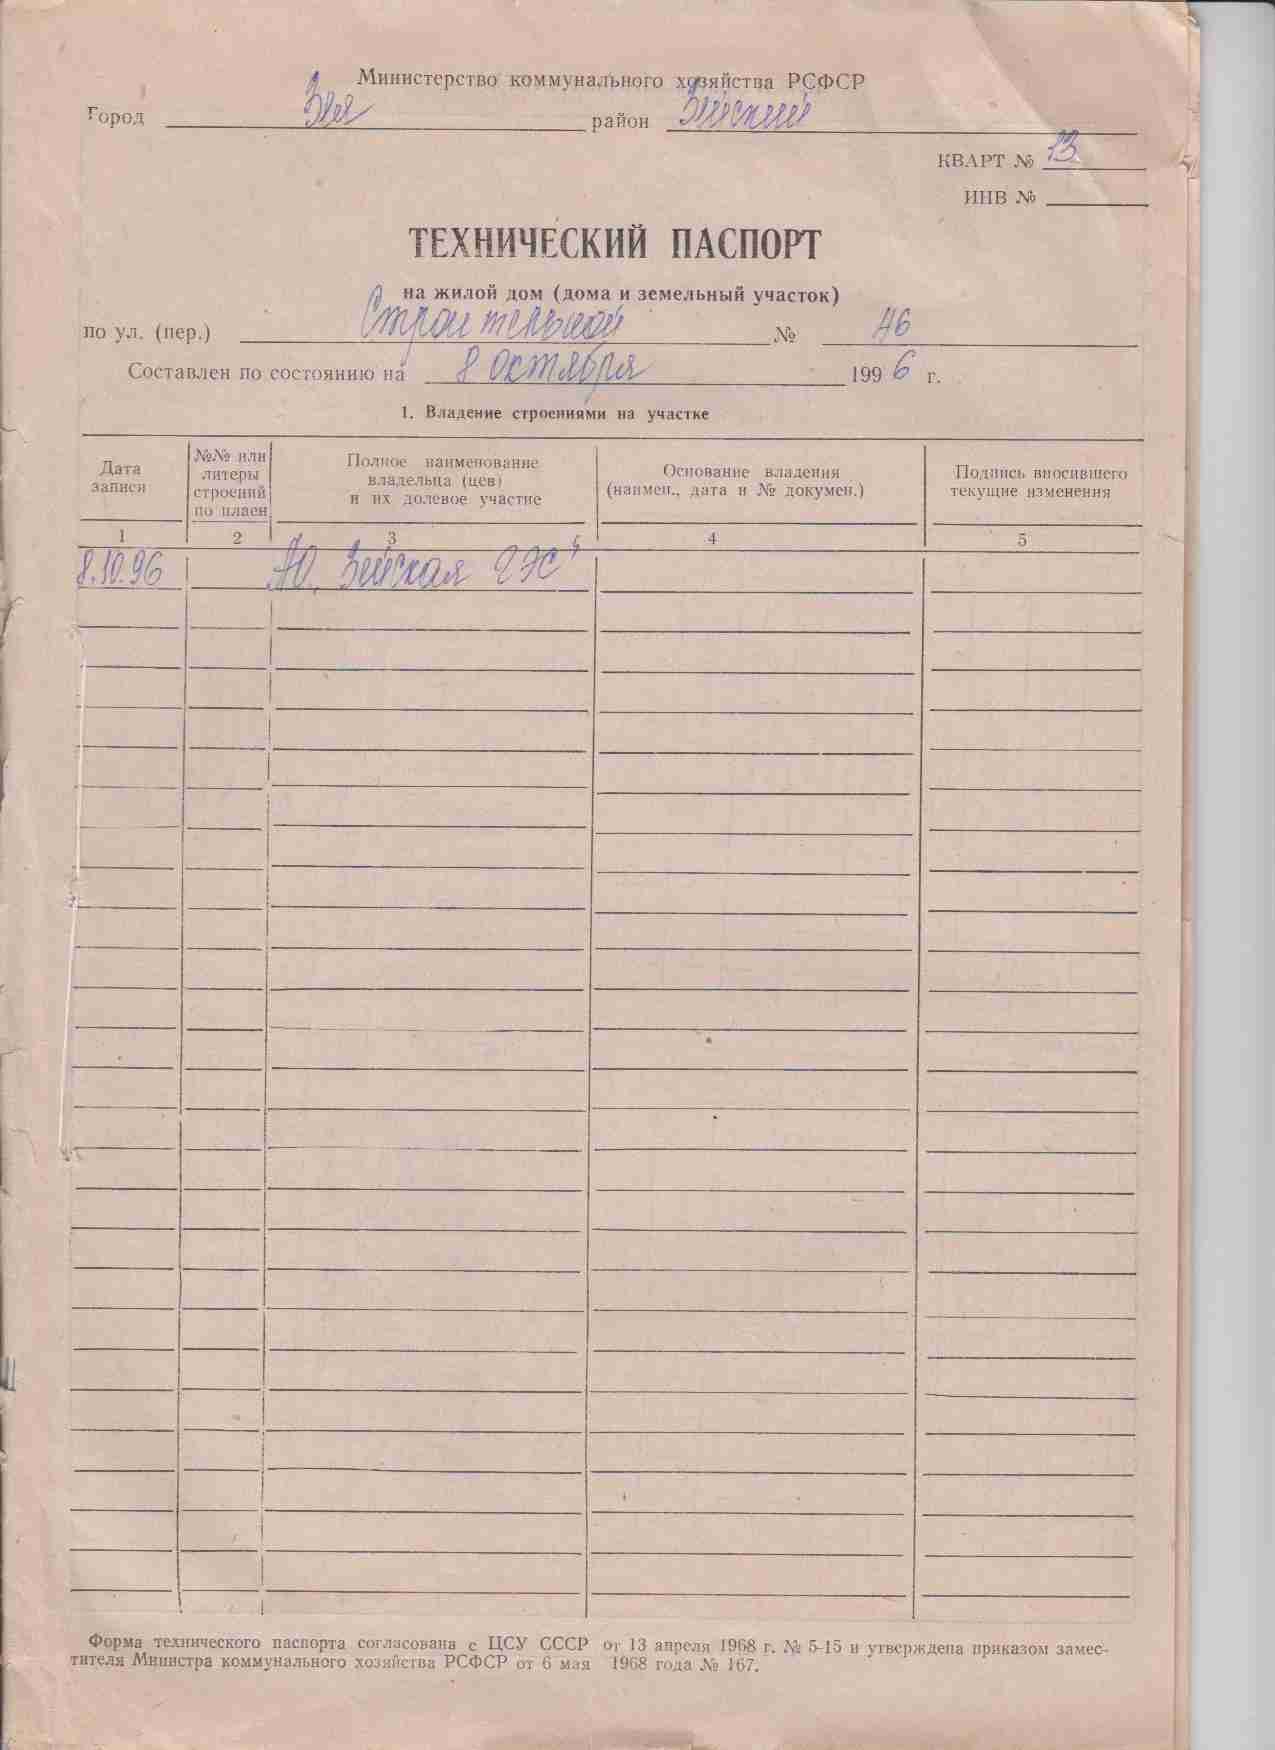 Министерство коммунального хозяйства РСФСР
Город Зея район Зейский
КВАРТ № 13
ИНВ №
ТЕХНИЧЕСКИЙ ПАСПОРТ
на жилой дом (дома и земельный участок)
по ул. (пер.) Строительной № 46
Составлен по состоянию на 8 октября 1996 г.
1. Владение строениями на участке
Дата записи
№№ или литеры строений по плаен
Полное наименование владельца (цев) и их долевое участие
Основание владения (наимен., дата и № докумен.)
Подпись вносившего текущие изменения
1 2 3 4 5
8.10.96 АО. Зейская ГЭС"
Форма технического паспорта согласована с ЦСУ СССР от 13 апреля 1968 г. № 5-15 и утверждена приказом замес-
тителя Министра коммунального хозяйства РСФСР от 6 мая 1968 года № 167.